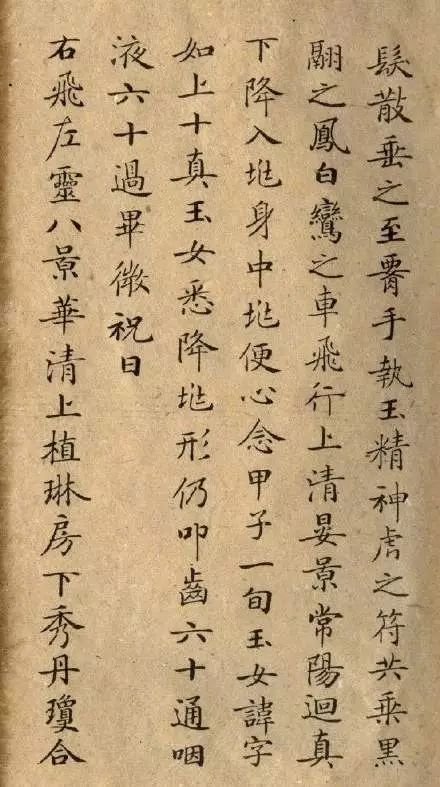 髮散垂之至腰手執玉精神虎之符共乘黑
翮之鳳白鸞之車飛行上清晏景常陽迴真
下降入垗身中垗便心念甲子一旬玉女諱字
如上十真玉女悉降垗形仍叩齒六十通咽
液六十過畢微祝曰
右飛左靈八景華清上植琳房下秀丹瓊合